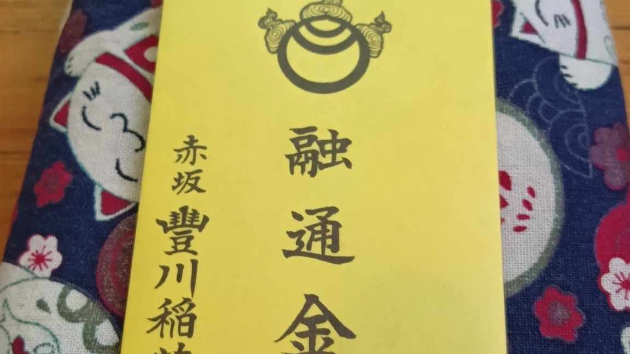 融通金
赤坂豐川稲